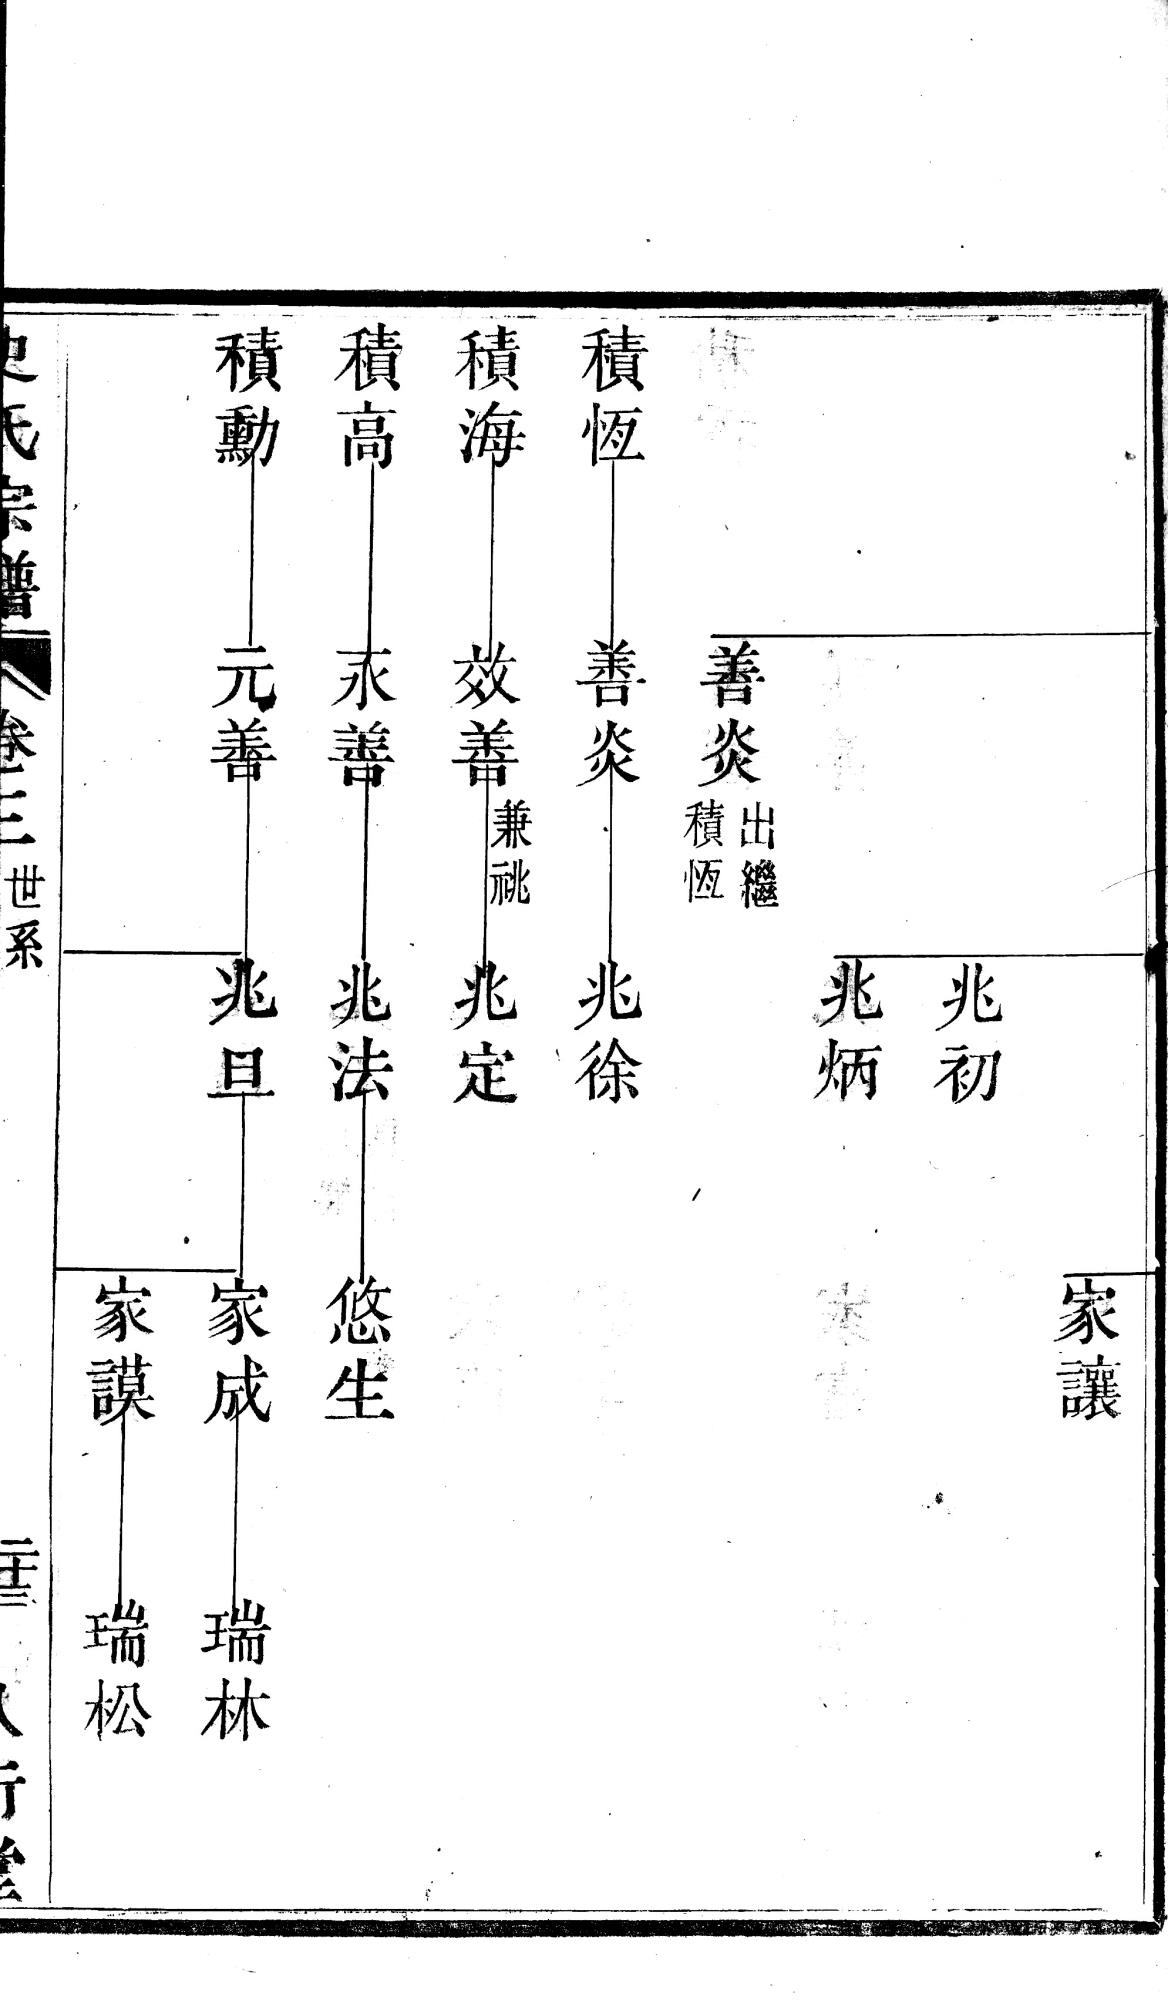 家讓
兆初
兆炳
善炎 出繼積恆
積恆 善炎 兆徐
積海 效善 兼祧 兆定
積高 永善 兆法 悠生
積勳 元善 兆旦 家成 瑞林
家謨 瑞松
史氏宗譜 卷三 世系 二十三